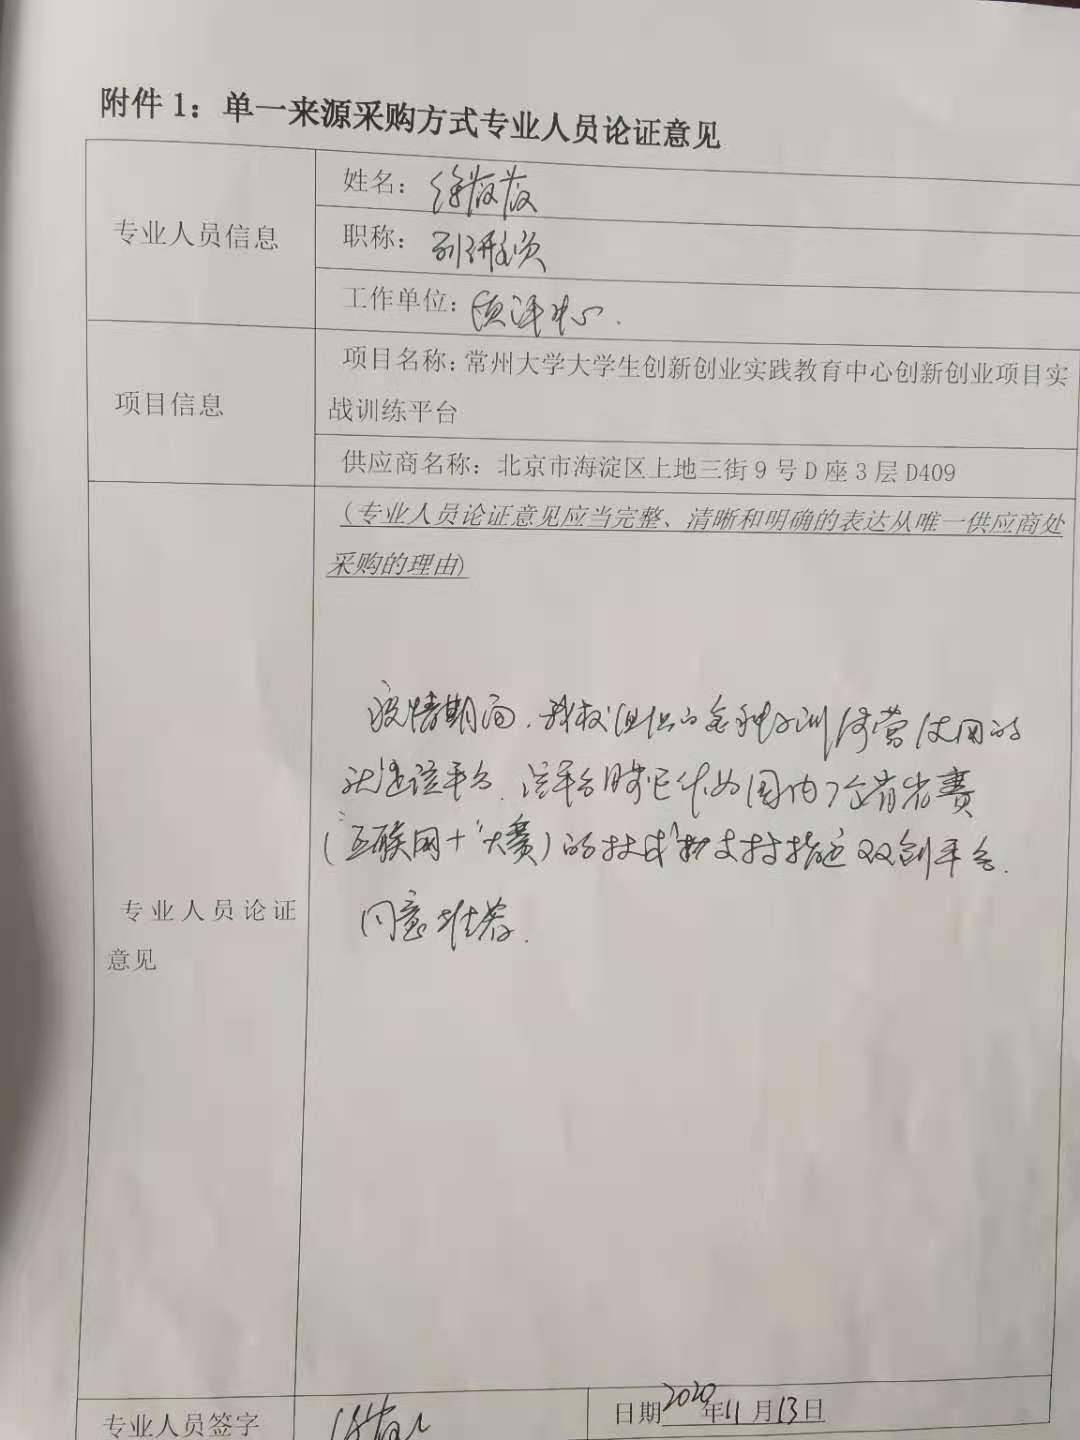 附件 1：单一来源采购方式专业人员论证意见
专业人员信息
姓名：徐
职称：副研究员
工作单位：测评中心.
项目信息
项目名称：常州大学大学生创新创业实践教育中心创新创业项目实
战训练平台
供应商名称：北京市海淀区上地三街 9 号 D 座 3 层 D409
专业人员论证
意见
（专业人员论证意见应当完整、清晰和明确的表达从唯一供应商处
采购的理由）
疫情期间，我校组织的金种子训练营使用的
就是该平台，该平台 已作为国内7个省省赛
（“互联网+”大赛）的技术支持指定双创平台.
同意推荐.
专业人员签字
日期 2020 年 11 月 13 日